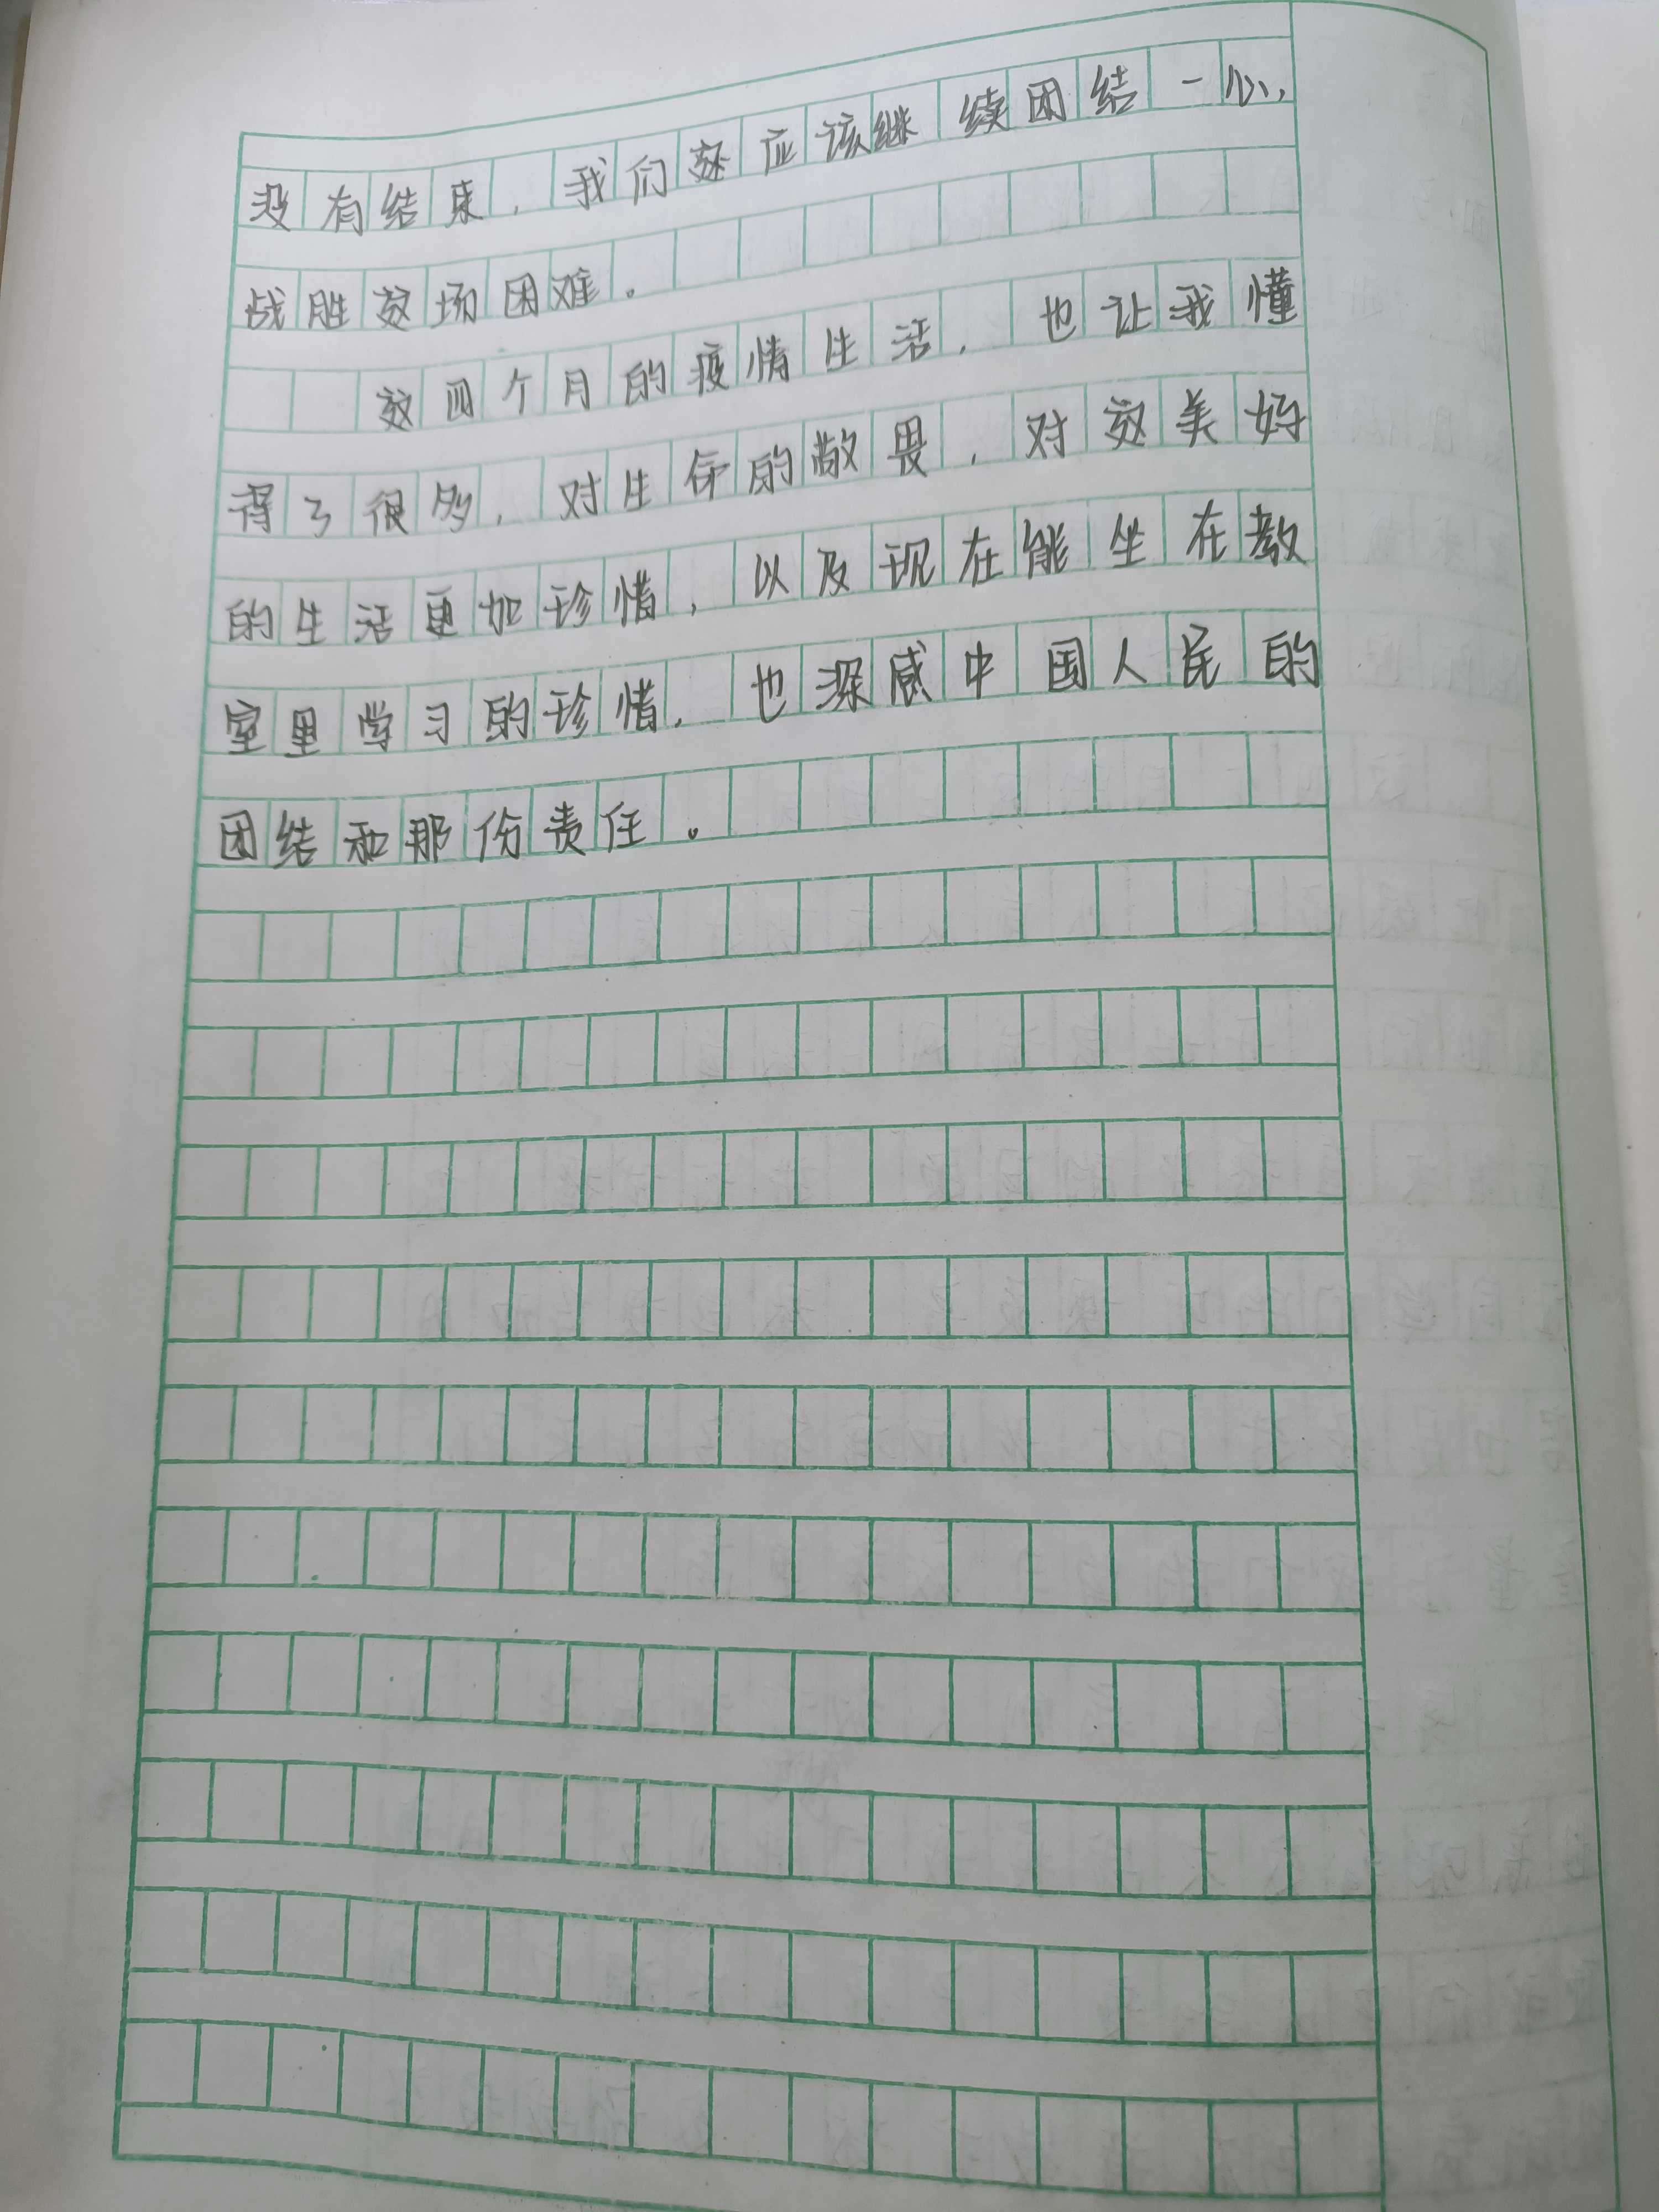 没有结束，我们还应该继续团结一心，
战胜这场困难。
这四个月的疫情生活，也让我懂
得了很多，对生命的敬畏，对这美好
的生活更加珍惜，以及现在能坐在教
室里学习的珍惜，也深感中国人民的
团结和那份责任。